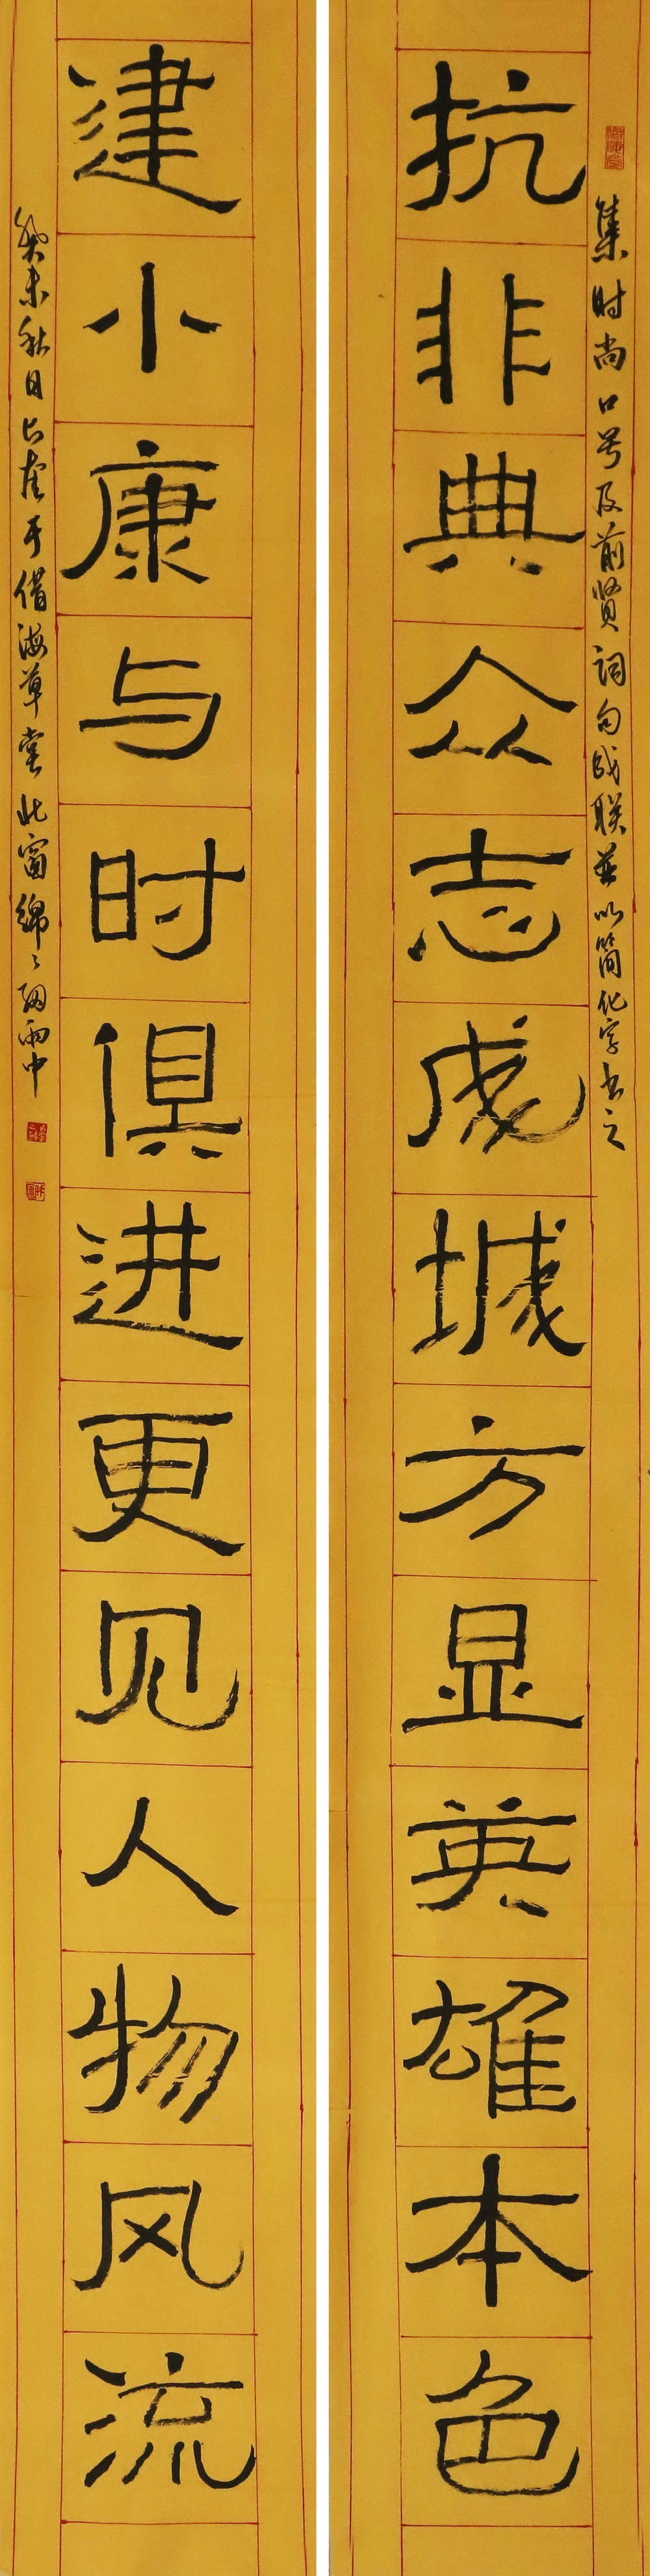 集时尚口号及前贤词句成联并以简化字书之
抗非典众志成城方显英雄本色
建小康与时俱进更见人物风流
癸未秋日 于借海草堂北窗绵绵细雨中